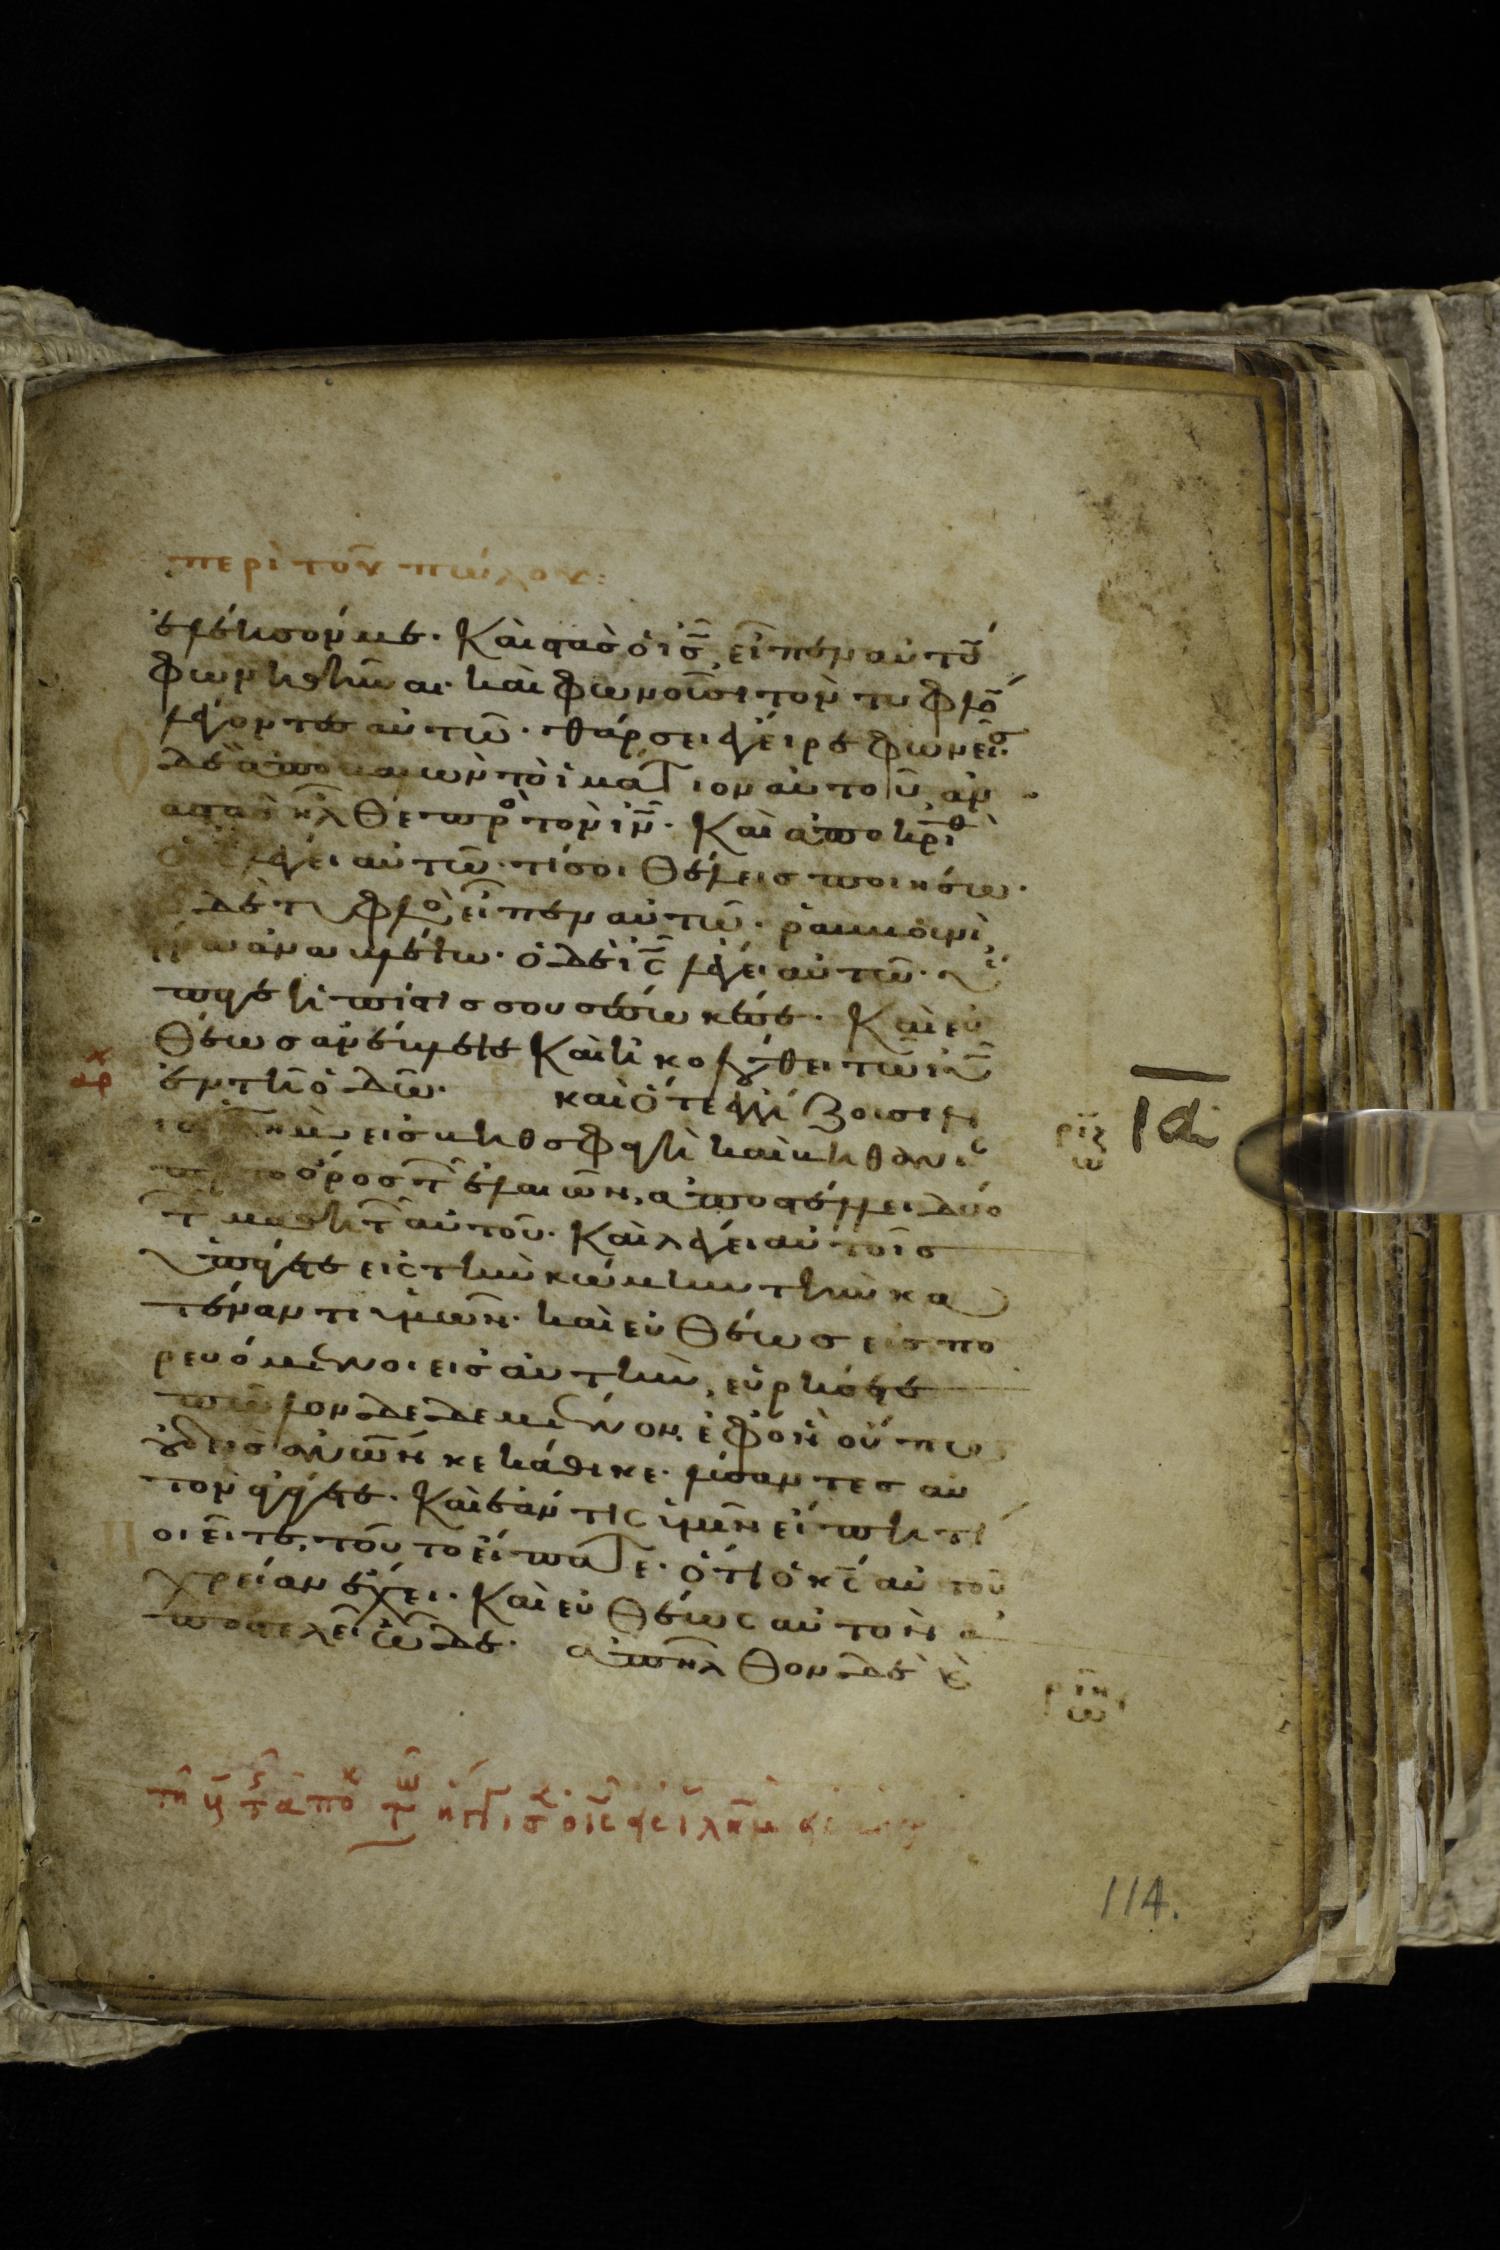 περὶ τοῦ πώλου:
ἐλέησόν με. Καὶ στὰς ὁ ις̅ εἶπεν αὐτὸ
φωνηθῆναι. καὶ φωνοῦσι τὸν τυφλὸ
λέγοντες αὐτῶ. θάρσει ἔγειρε φωνεῖ σε
δὲ ἀποβαλὼν τὸ ἱμάτιον αὐτοῦ, ἀν
αστὰς ἦλθε πρὸς τὸν ιν̅. Καὶ ἀποκριθ
ὁ λέγει αὐτῶ. τί σοι θέλεις ποιήσω.
δὲ τυφλὸς εἶπεν αὐτῶ. ῥαββουνὶ
ἵνα ἀναβλέψω. ὁ δὲ ις̅ λέγει αὐτῶ. ὕ
παγε ἡ πίστις σου σέσωκέ σε. Καὶ εὐ
θέως ἀνέβλεψε Καὶ ἠκολούθει τῶ ιυ̅
ἐν τῆ ὁδῶ. καὶ ὅτε ἐγγίζουσιν
εἰς βηθσφαγὴ καὶ βηθανί
πρὸς τὸ ὄρος τῶν ἐλαιῶν, ἀποστέλλει δύο
τῶν μαθητῶν αὐτοῦ. Καὶ λέγει αὐτοῖς
ὑπάγετε εἰς τὴν κώμην τὴν κα
τέναντι ὑμῶν. καὶ εὐθέως εἰσπο
ρευόμενοι εἰς αὐτὴν, εὑρήσετε
πῶλον δεδεμένον, ἐφ' ὃν οὔπω
οὐδεὶς ἀνων κεκάθικε. λύσαντες αὐ
τὸν ἀγάγετε. Καὶ ἐάν τις ὑμῖν εἴπη τί
ποιεῖτε, τοῦτο εἴπατε. ὅτι ὁ κς̅ αὐτοῦ
χρείαν ἔχει. Καὶ εὐθέως αὐτὸν ἀ
ποστελεῖ ὧδε. ἀπῆλθον δὲ κ
αρχ
ριζ
ιδ
ριη
114.